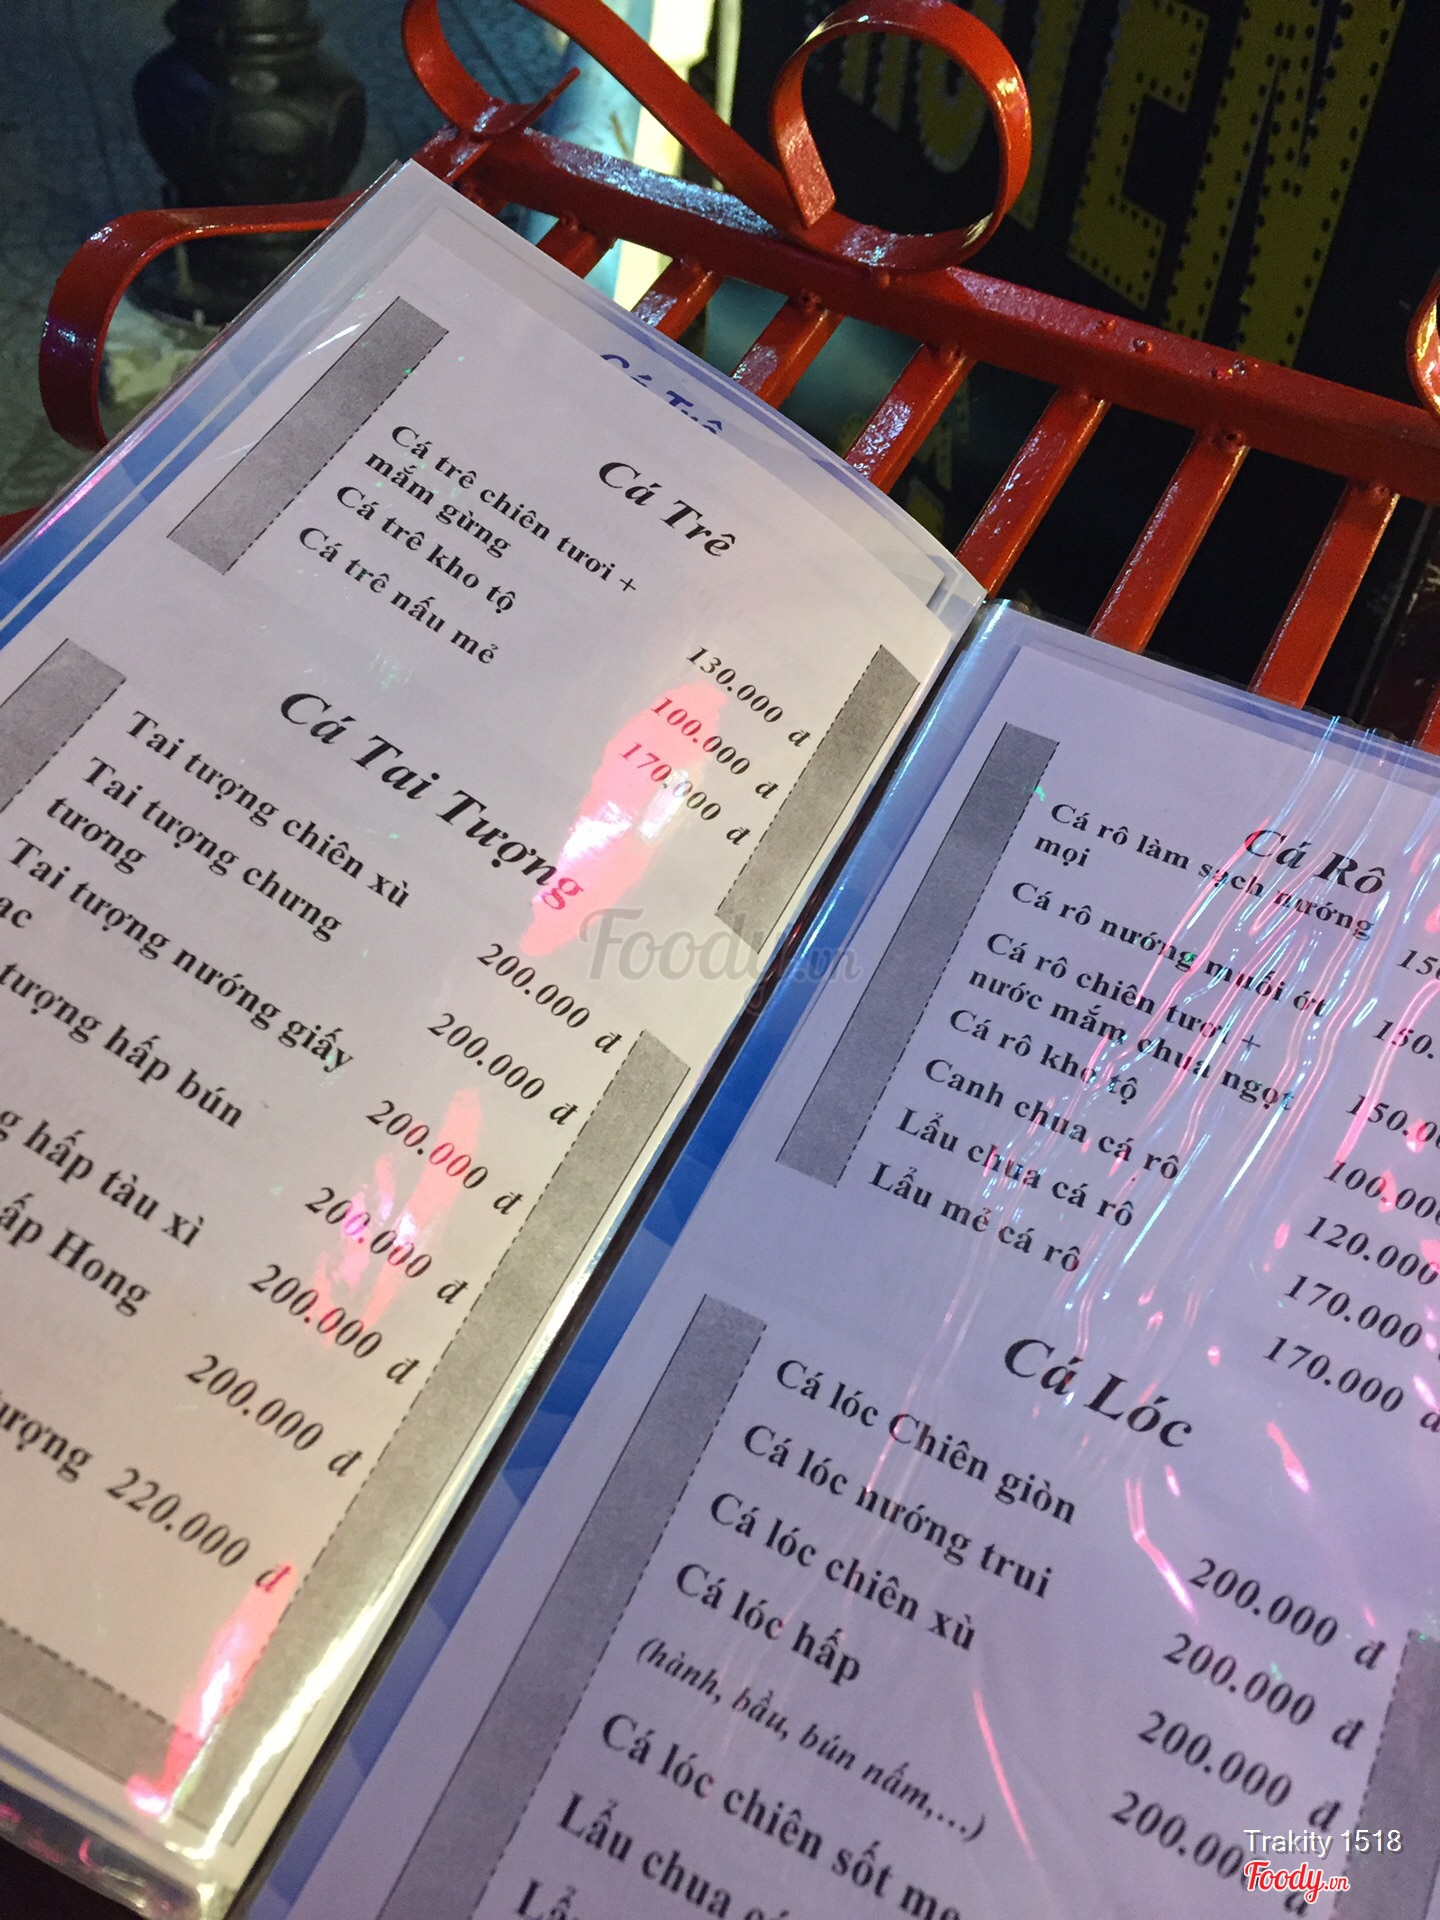 Cá Trê
Cá trê chiên tươi +
mắm gừng 130.000 đ
Cá trê kho tộ 100.000 đ
Cá trê nấu mẻ 170.000 đ
Cá Tai Tượng
Tai tượng chiên xù 200.000 đ
Tai tượng chưng
tương 200.000 đ
Tai tượng nướng giấy
ạc 200.000 đ
tượng hấp bún 200.000 đ
g hấp tàu xì 200.000 đ
ấp Hong 200.000 đ
ượng 220.000 đ
Cá Rô
Cá rô làm sạch nướng
mọi 150
Cá rô nướng muối ớt 150.
Cá rô chiên tươi +
nước mắm chua ngọt 150.00
Cá rô kho tộ 100.000
Canh chua cá rô 120.000
Lẩu chua cá rô 170.000
Lẩu mẻ cá rô 170.000 đ
Cá Lóc
Cá lóc Chiên giòn 200.000 đ
Cá lóc nướng trui 200.000 đ
Cá lóc chiên xù 200.000 đ
Cá lóc hấp 200.000 đ
(hành, bầu, bún nấm,...)
Cá lóc chiên sốt me
Lẩu chua cá
Foody.vn
Trakity 1518
Foody.vn